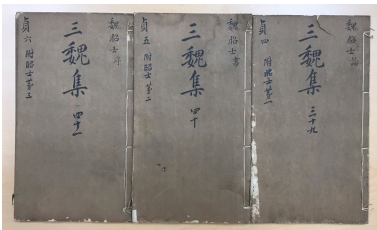 魏昭士詩
三魏集 三十九
貞四 附昭士第一
魏昭士書
三魏集 四十
貞五 附昭士第二
魏昭士序
三魏集 四十一
貞六 附昭士第三